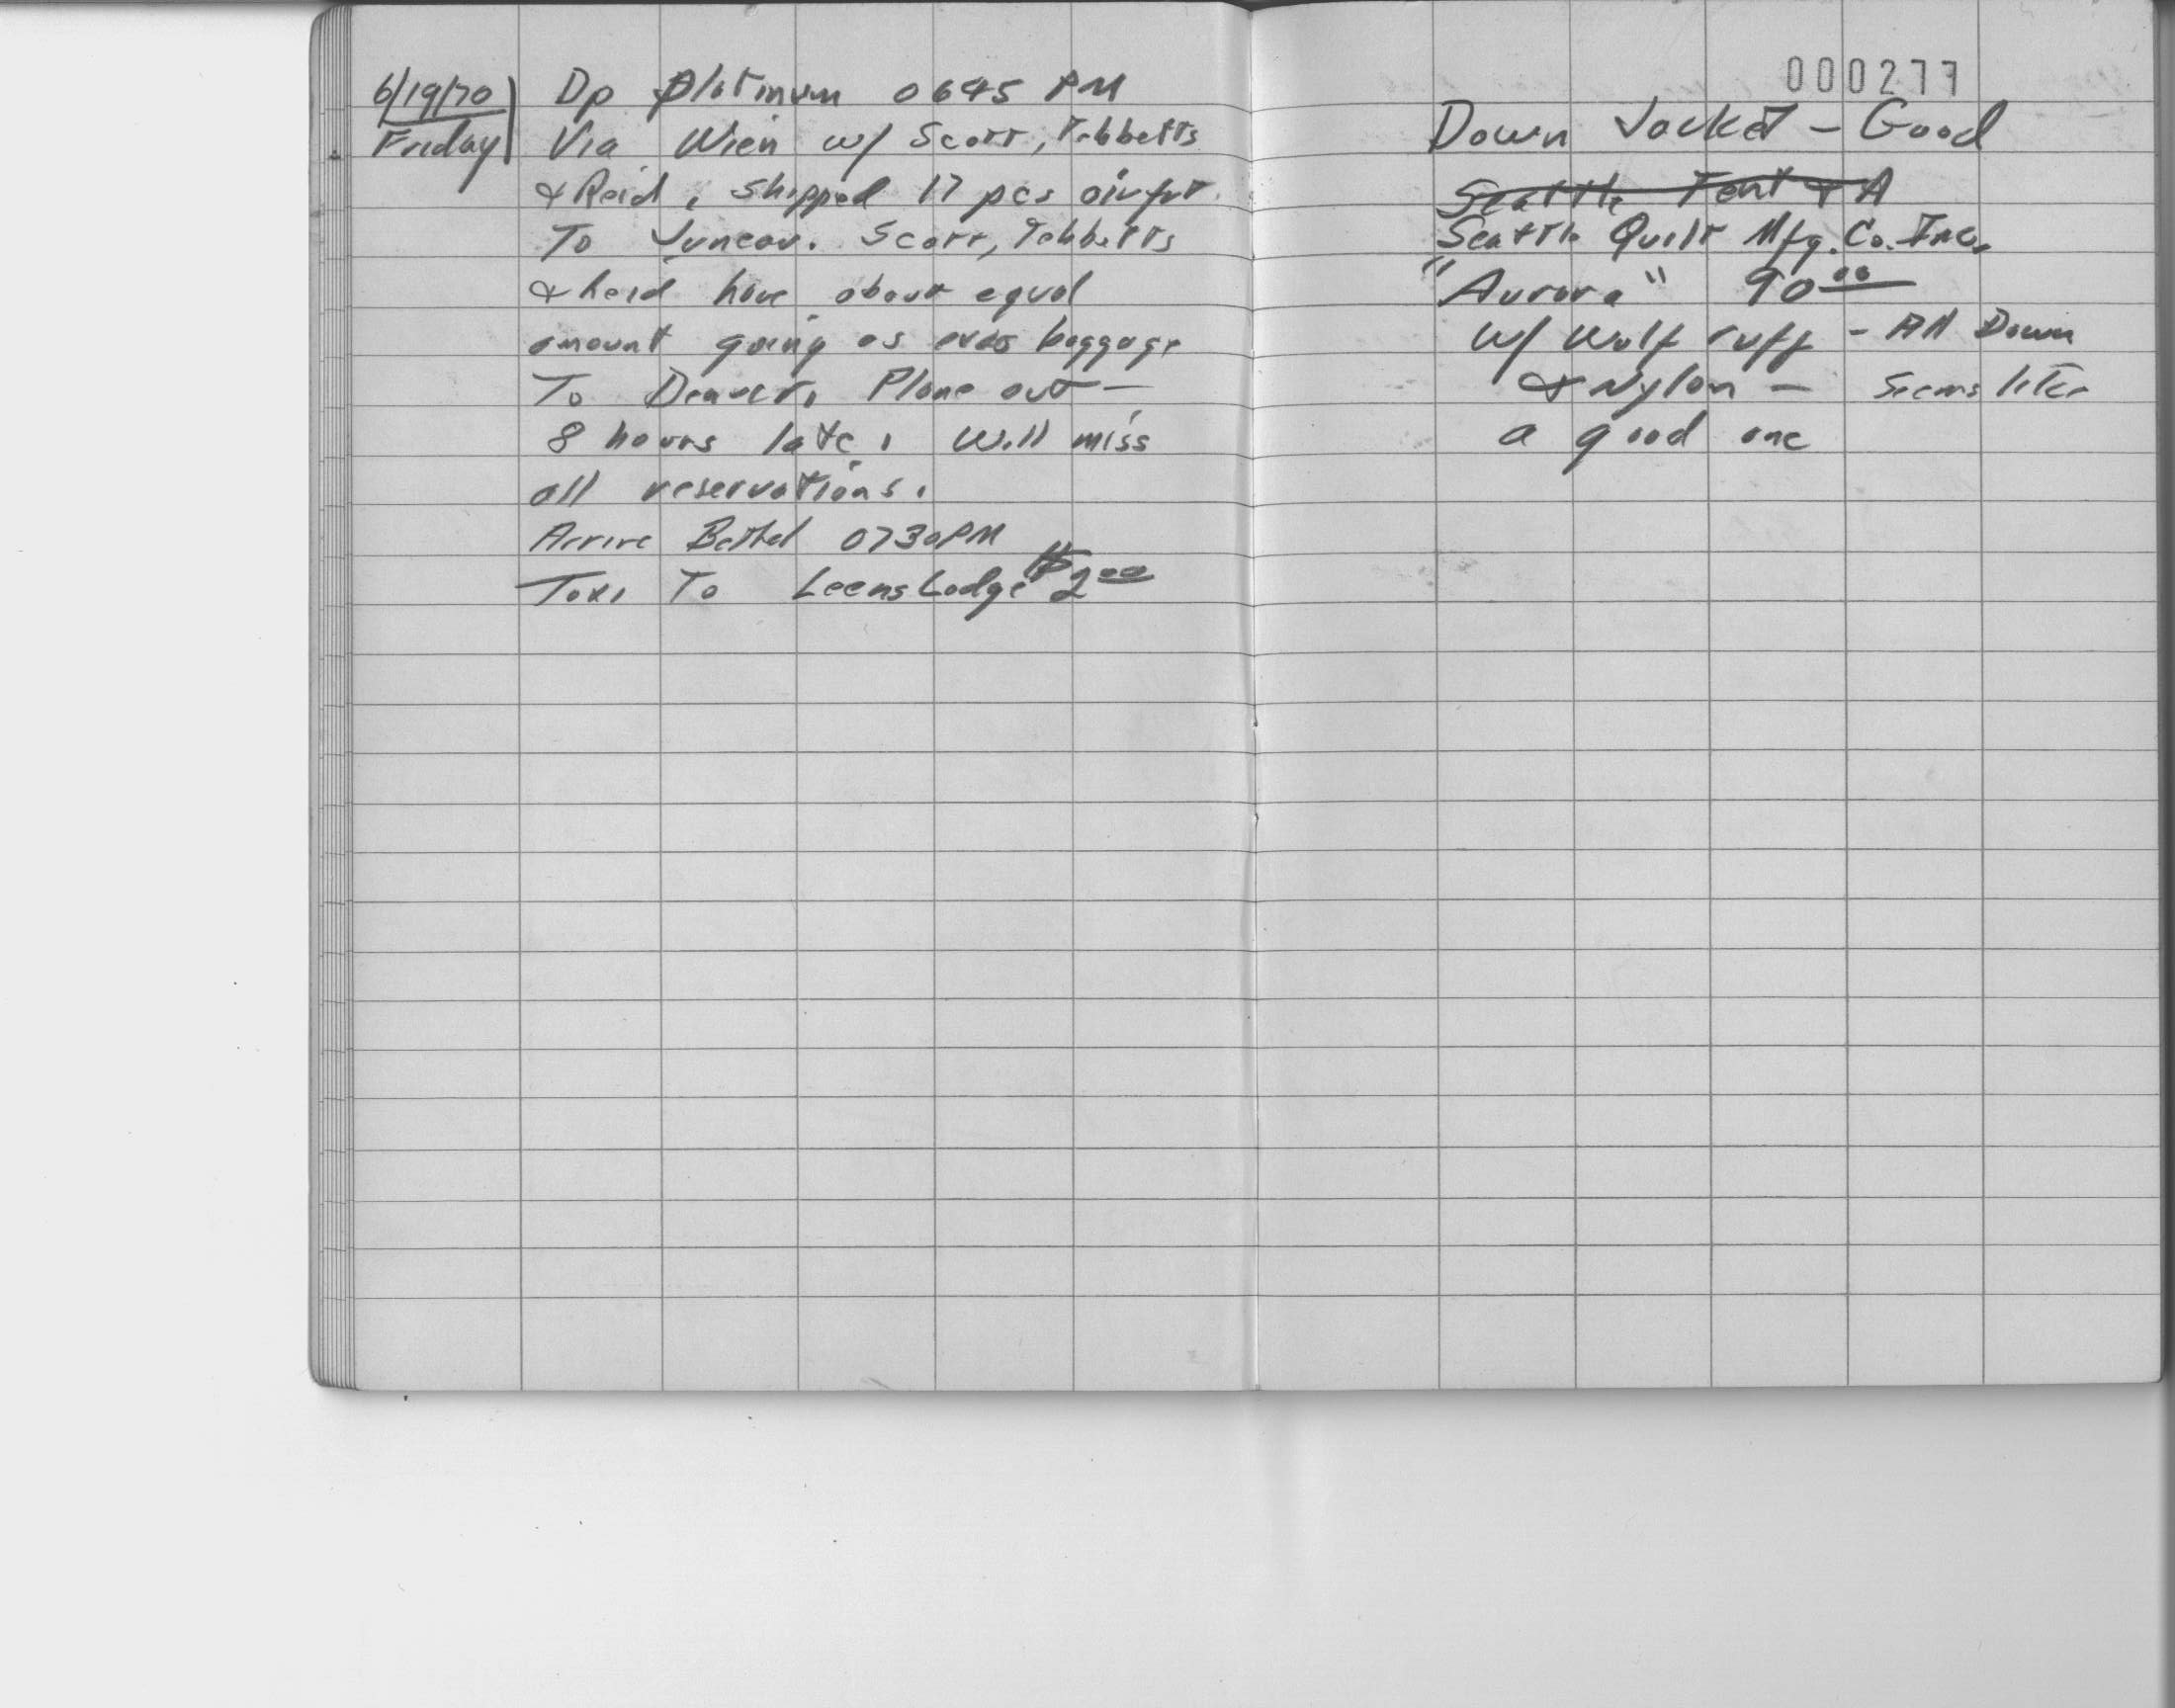 6/19/70
Friday
Dp Platinum 0645 PM
Via Wien w/ Scott, Tebbetts
& Reid. Shipped 17 pcs airfrt.
To Juneau. Scott, Tebbetts
& Reid have about equal
amount going as excs baggage
To Denver. Plane out —
8 hours late. Will miss
all reservations.
Arrive Bethel 0730PM
Taxi To Leens Lodge $2.00
000277
Down Jacket - Good
Seattle Tent & A
Seattle Quilt Mfg. Co. Inc.
"Aurora" 90.00
w/ Wolf ruff - All Down
& Nylon — Seems like
a good one